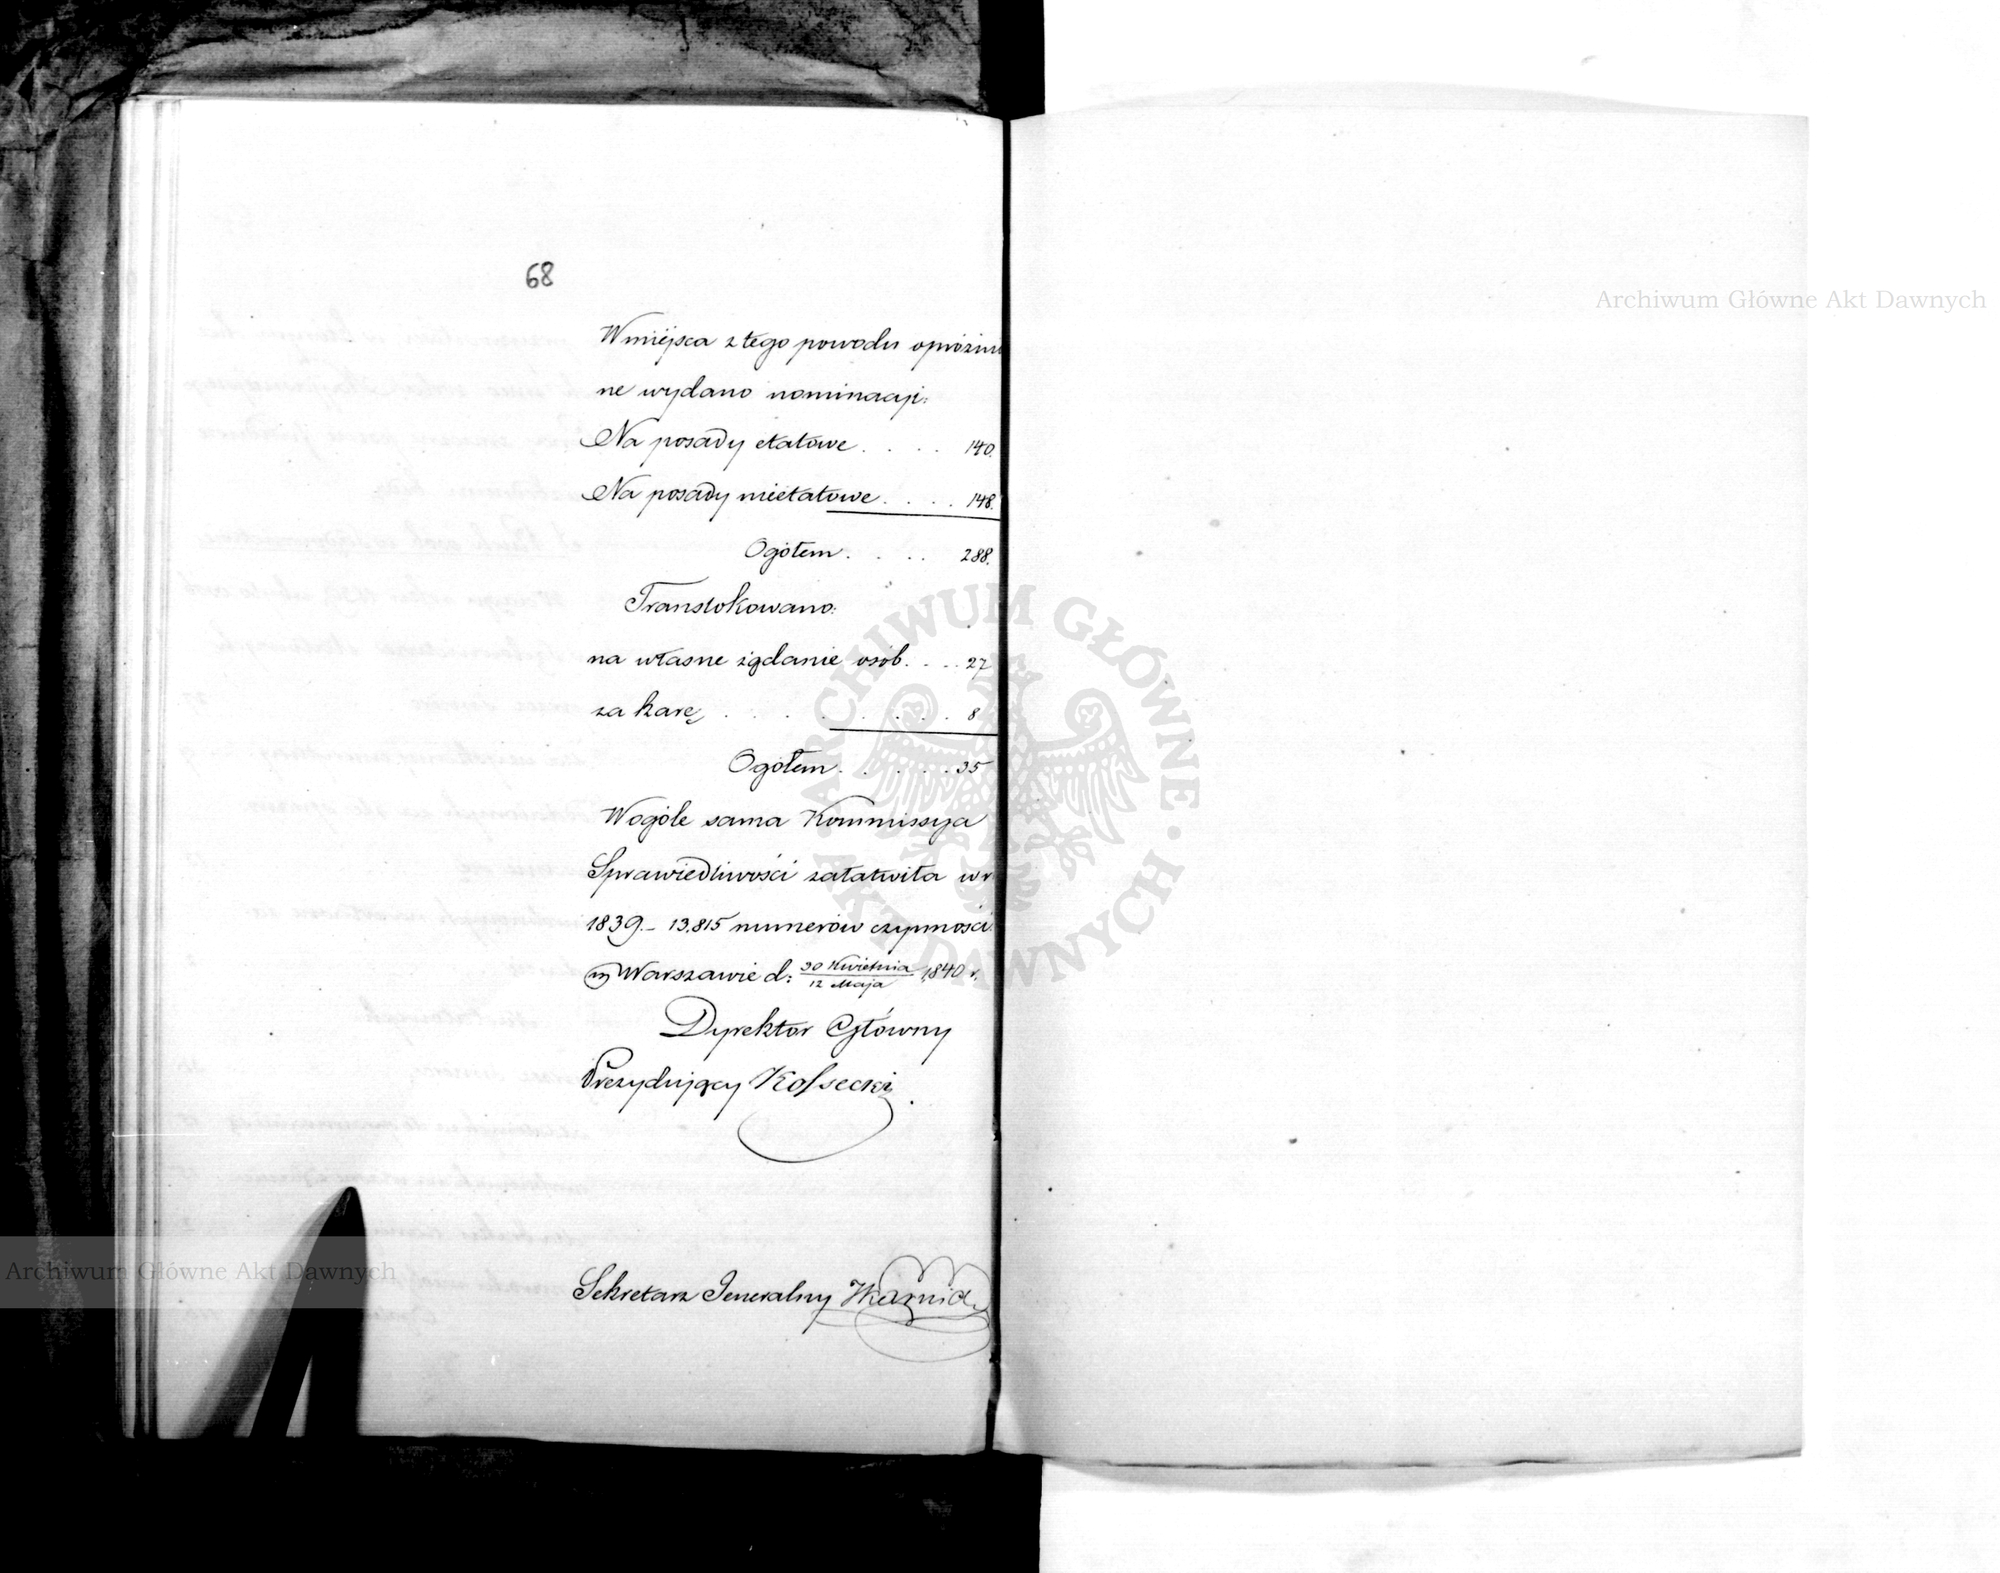 68
W miéjsca z tego powodu opróżnio
ne wydano nominacyi:
Na posady etatowe . . . . 140.
Na posady nieetatowe . . . . 148.
Ogółem . . . . 288.
Translokowano:
na własne żądanie osób . . . 27
za karę . . . . . . . . . 8
Ogółem . . . . . 35
Wogóle sama Kommissya
Sprawiedliwości załatwiła w r
1839.– 13.815 numerów czynności.
w Warszawie d: 30 Kwietnia / 12 Maja 1840 r.
Dyrektor Główny
Prezydujący Kossecki
Sekretarz Jeneralny
Archiwum Główne Akt Dawnych
Archiwum Główne Akt Dawnych
ARCHIWUM GŁÓWNE AKT DAWNYCH